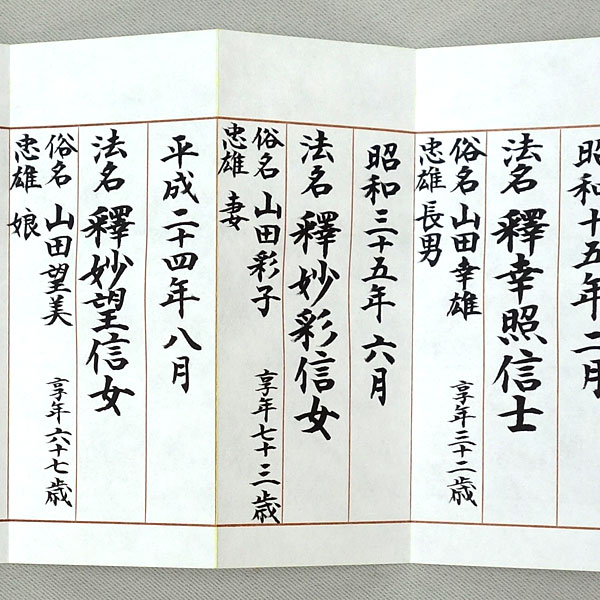 昭和十五年二月
法名 釋幸照信士
俗名 山田幸雄 享年三十二歳
忠雄 長男
昭和三十五年 六月
法名 釋妙彩信女
俗名 山田彩子 享年七十三歳
忠雄 妻
平成二十四年 八月
法名 釋妙望信女
俗名 山田望美 享年六十七歳
忠雄 娘